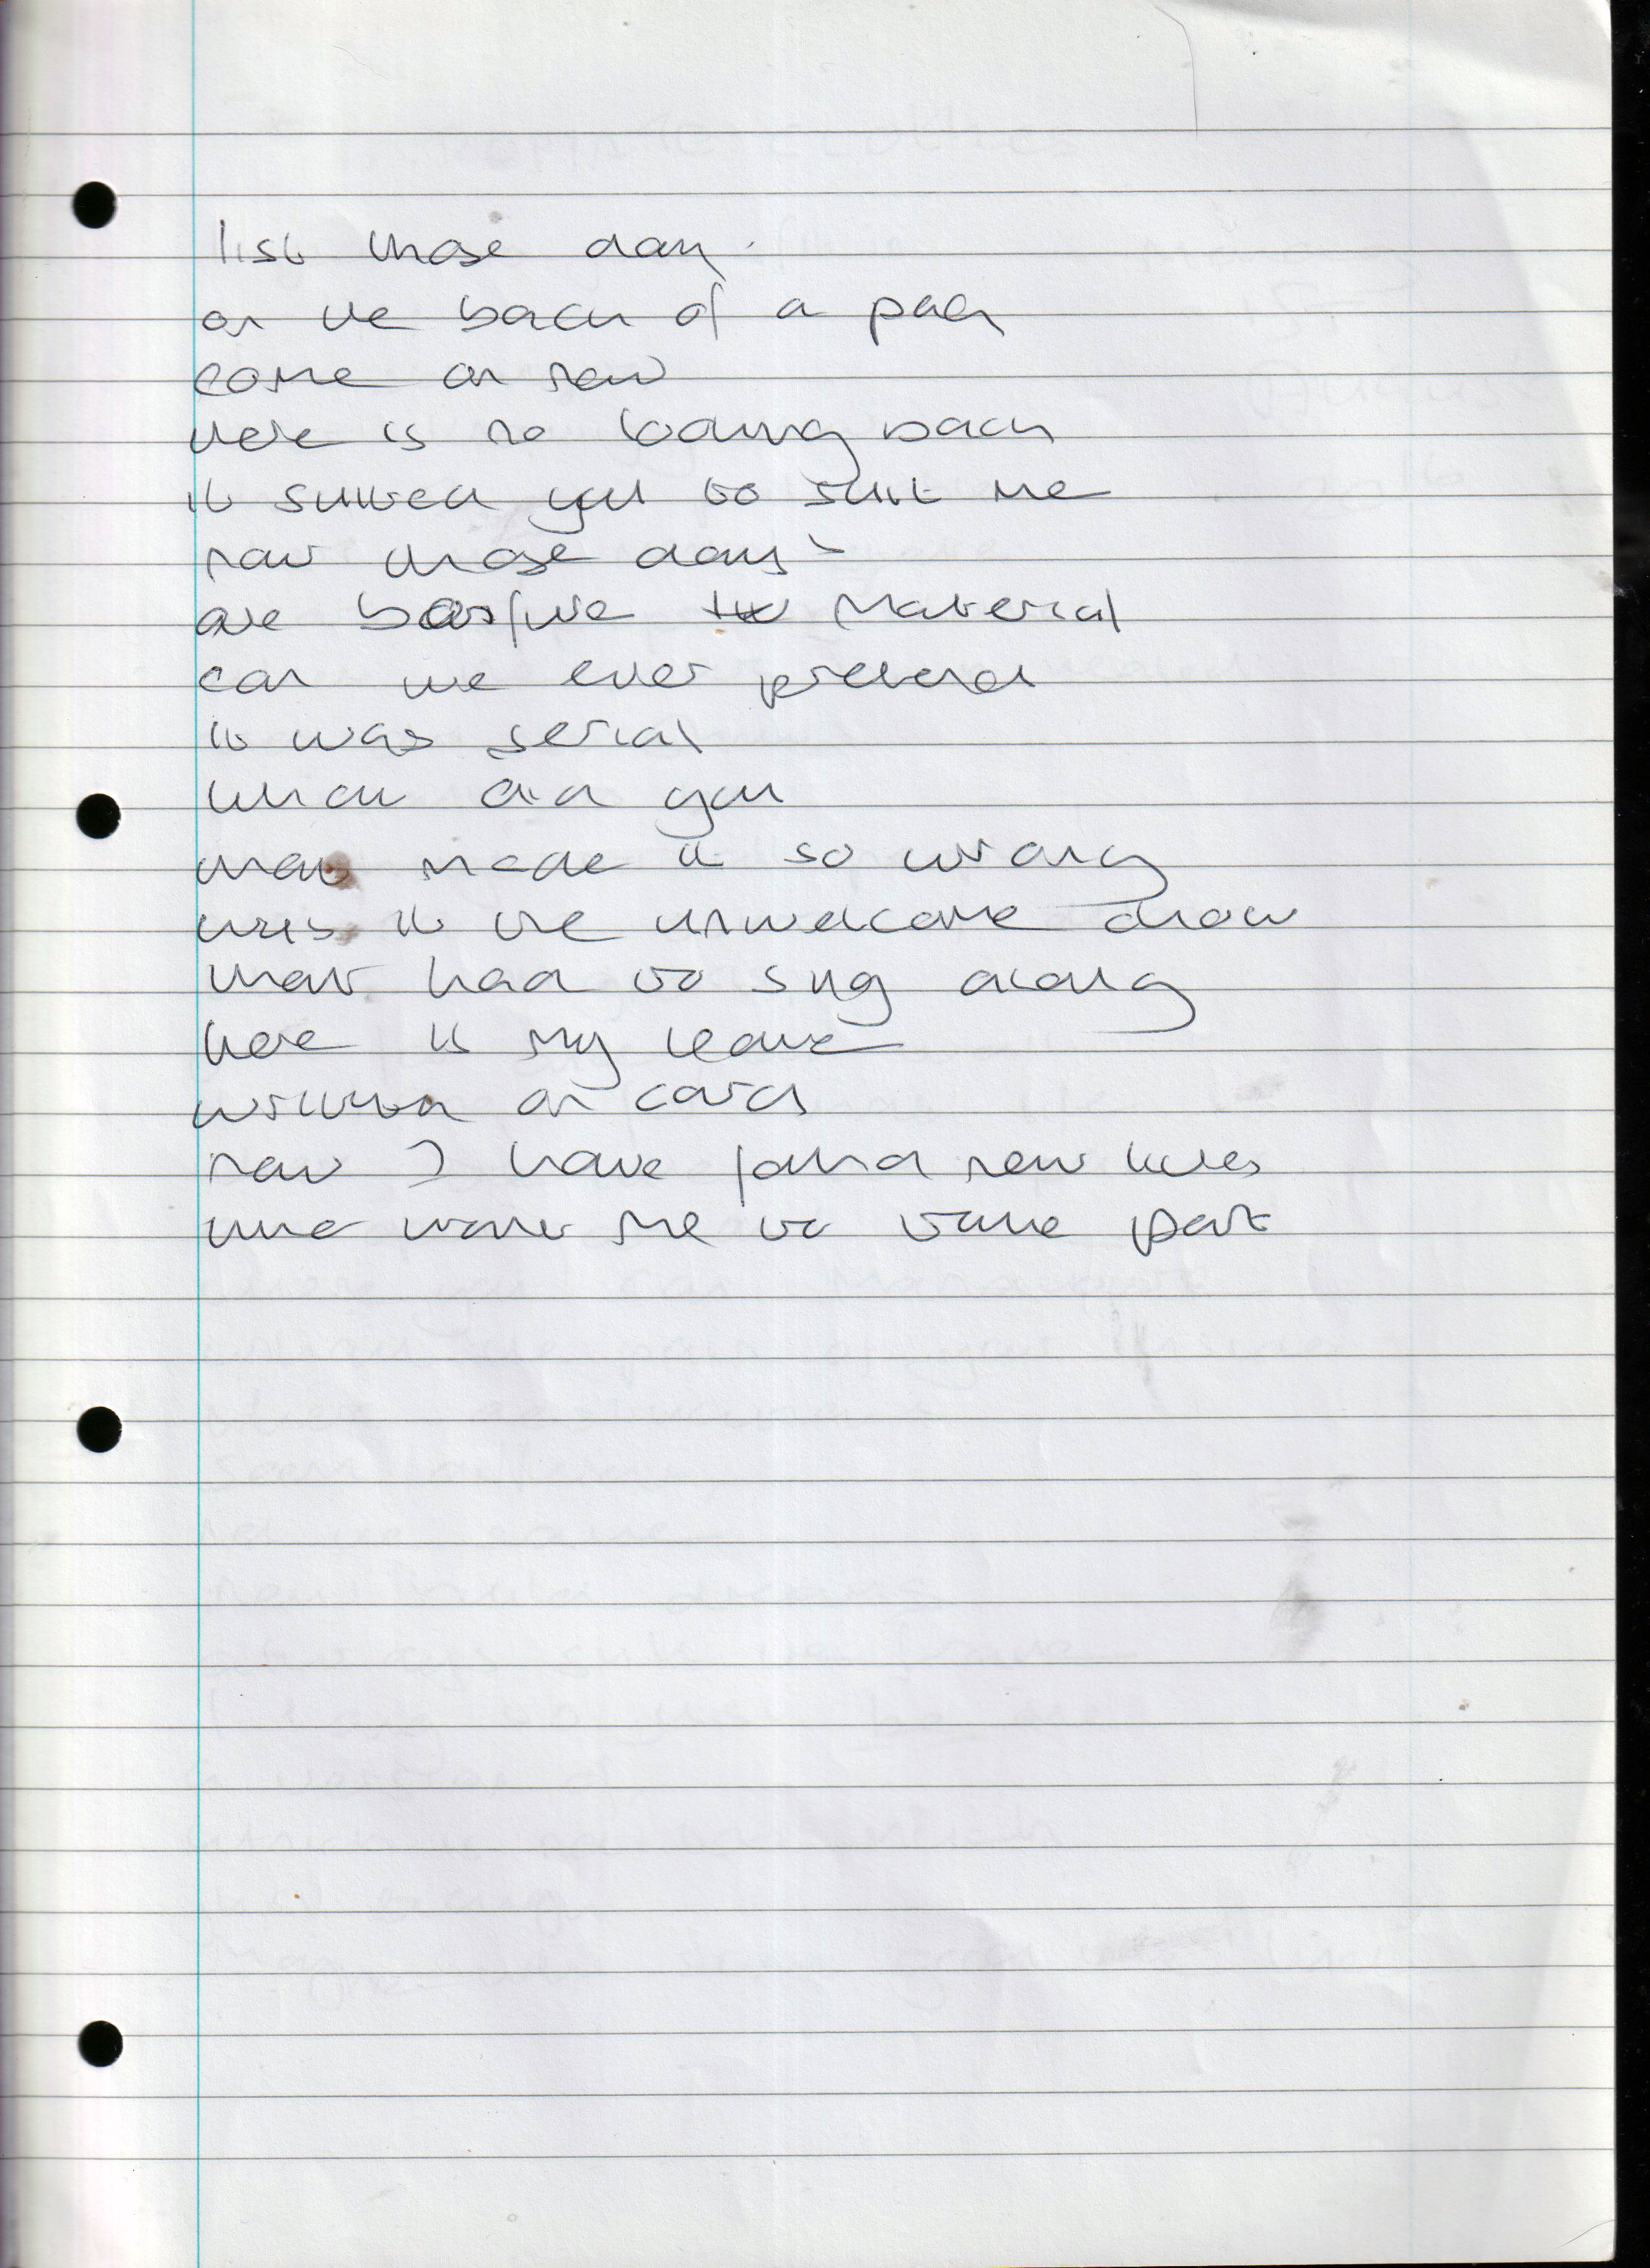 list those days
on the back of a pack
come on now
there is no looking back
it suited you to suit me
now those days
are bonfire material
can we ever pretend
it was serial
what did you
that made it so wrong
was it the unwelcome crow
that had to sing along
here is my leave
written on card
now I have found new lives
who want me to take part